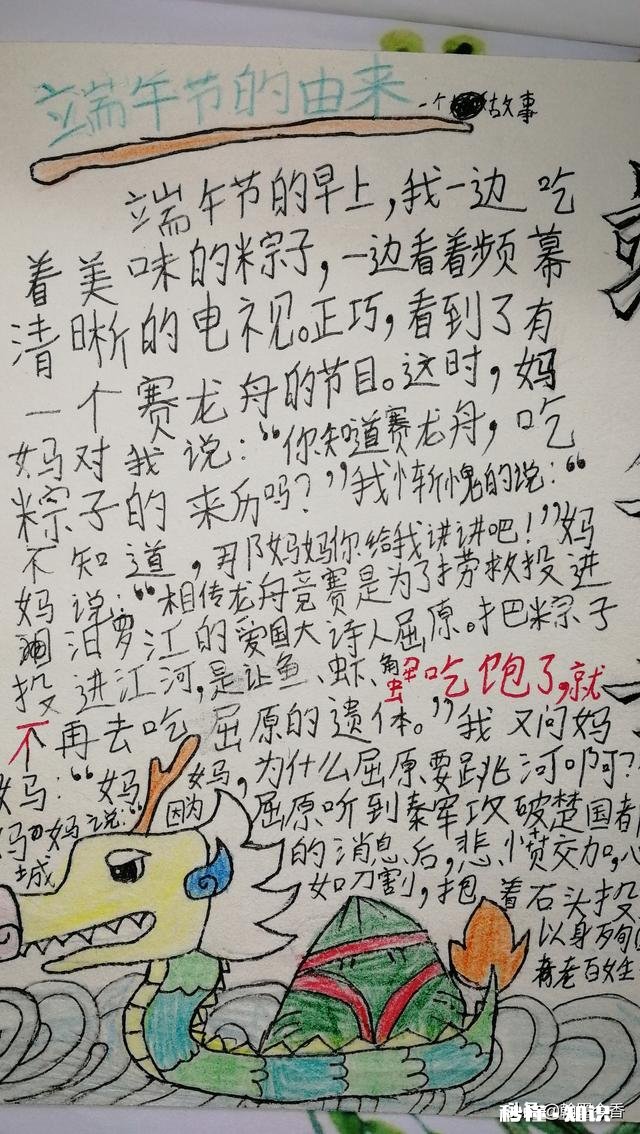 端午节的由来 一个 故事
端午节的早上,我一边吃
着美味的粽子,一边看着频幕
清晰的电视。正巧,看到了有
一个赛龙舟的节目。这时,妈
妈对我说:“你知道赛龙舟,吃
粽子的来历吗?”我惭愧的说:“
不知道,那妈妈你给我讲讲吧!”妈
妈说:“相传龙舟竞赛是为了捞救投进
汨罗江的爱国大诗人屈原。把粽子
投进江河,是让鱼、虾、蟹吃饱了,就
不再去吃屈原的遗体。”我又问妈
妈:“妈妈,为什么屈原要跳河啊?
妈妈说:“因为屈原听到秦军攻破楚国都
城的消息后,悲愤交加,心
如刀割,抱着石头投
以身殉
老百姓
头条 @翰墨余香
秒懂·知识